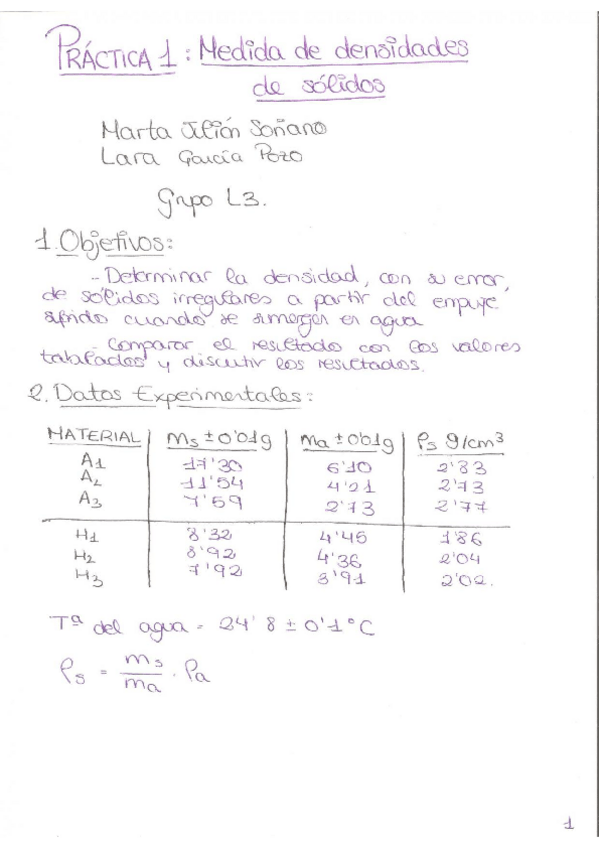 PRÁCTICA 1: Medida de densidades
de sólidos
Marta Julián Soñano
Lara García Pozo
Grupo L3.
1. Objetivos:
- Determinar la densidad, con su error,
de sólidos irregulares a partir del empuje
sufrido cuando se sumergen en agua
- Comparar el resultado con los valores
tabulados y discutir los resultados.
2. Datos Experimentales:
MATERIAL | ms ± 0'01g | ma ± 0'01g | ρs g/cm³
A1 17'30 6'10 2'83
A2 11'54 4'21 2'73
A3 7'59 2'73 2'77
H1 8'32 4'45 1'86
H2 8'92 4'36 2'04
H3 7'92 3'91 2'02.
Tª del agua = 24'8 ± 0'1°C
ρs = ms/ma · ρa
1